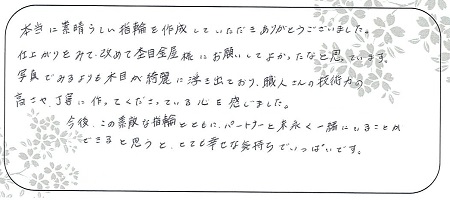 本当に素晴らしい指輪を作成していただきありがとうございました。
仕上がりをみて、改めて杢目金屋様にお願いしてよかったなと思っています。
写真でみるよりも木目が綺麗に浮き出ており、職人さんの技術力の
高さや、丁寧に作ってくださっている心を感じました。
今後、この素敵な指輪とともに、パートナーと末永く一緒にいることが
できると思うと、とても幸せな気持ちでいっぱいです。